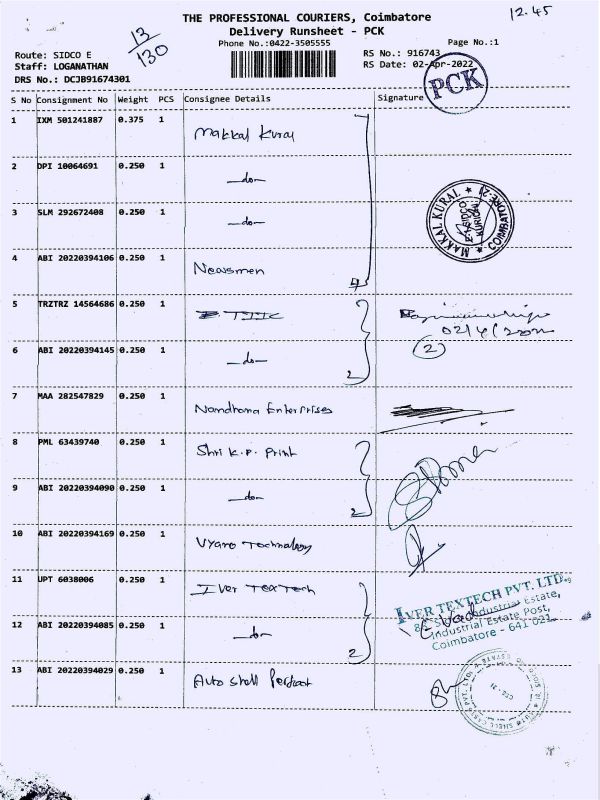 12.45
THE PROFESSIONAL COURIERS, Coimbatore
Delivery Runsheet - PCK
Phone No.:0422-3505555
13
130
Page No.:1
Route: SIDCO E
RS No.: 916743
Staff: LOGANATHAN
RS Date: 02-Apr-2022
DRS No.: DCJB91674301
PCK
S No Consignment No Weight PCS Consignee Details Signature
1 IXM 501241887 0.375 1 Makkal Kural
2 DPI 10064691 0.250 1 -do-
3 SLM 292672408 0.250 1 -do-
MAKKAL KURAL
COIMBATORE-21
SIDCO
KURICHI
4 ABI 20220394106 0.250 1 Newsmen
4
5 TRZTRZ 14564686 0.250 1 TIIC
02/4/2022
6 ABI 20220394145 0.250 1 -do- 2
2
7 MAA 282547829 0.250 1 Nandhana Enterprises
8 PML 63439740 0.250 1 Shri K.P. Print
9 ABI 20220394090 0.250 1 -do- 2
10 ABI 20220394169 0.250 1 Vyaro Technology
11 UPT 6038006 0.250 1 Iver Tex Tech
IVER TEXTECH PVT. LTD.
Industrial Estate,
Industrial Estate Post,
Coimbatore - 641 021.
12 ABI 20220394085 0.250 1 -do- 2
13 ABI 20220394029 0.250 1 Auto Shell Perfect